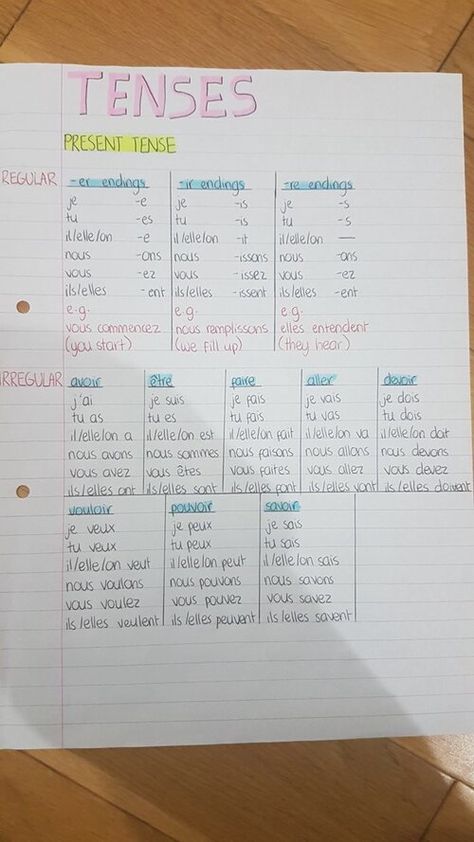 TENSES
PRESENT TENSE
REGULAR
-er endings -ir endings -re endings
je -e je -is je -s
tu -es tu -is tu -s
il/elle/on -e il/elle/on -it il/elle/on —
nous -ons nous -issons nous -ons
vous -ez vous -issez vous -ez
ils/elles -ent ils/elles -issent ils/elles -ent
e.g. e.g. e.g.
vous commencez nous remplissons elles entendent
(you start) (we fill up) (they hear)
IRREGULAR
avoir être faire aller devoir
j'ai je suis je fais je vais je dois
tu as tu es tu fais tu vas tu dois
il/elle/on a il/elle/on est il/elle/on fait il/elle/on va il/elle/on doit
nous avons nous sommes nous faisons nous allons nous devons
vous avez vous êtes vous faites vous allez vous devez
ils/elles ont ils/elles sont ils/elles font ils/elles vont ils/elles doivent
vouloir pouvoir savoir
je veux je peux je sais
tu veux tu peux tu sais
il/elle/on veut il/elle/on peut il/elle/on sais
nous voulons nous pouvons nous savons
vous voulez vous pouvez vous savez
ils/elles veulent ils/elles peuvent ils/elles savent